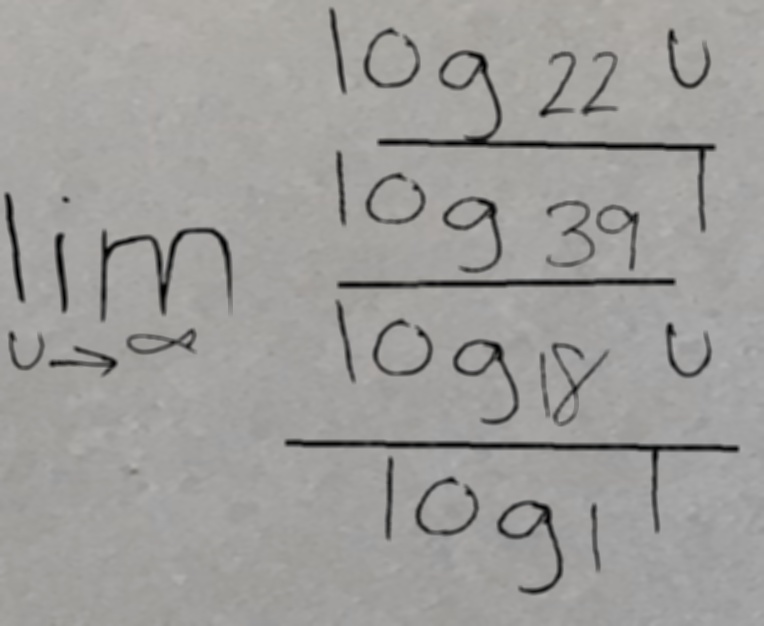 lim u→∞ \frac{\frac{\frac{\log_{22} u}{\log_{39} 1}}{\log_{18} u}}{\log_{1} 1}